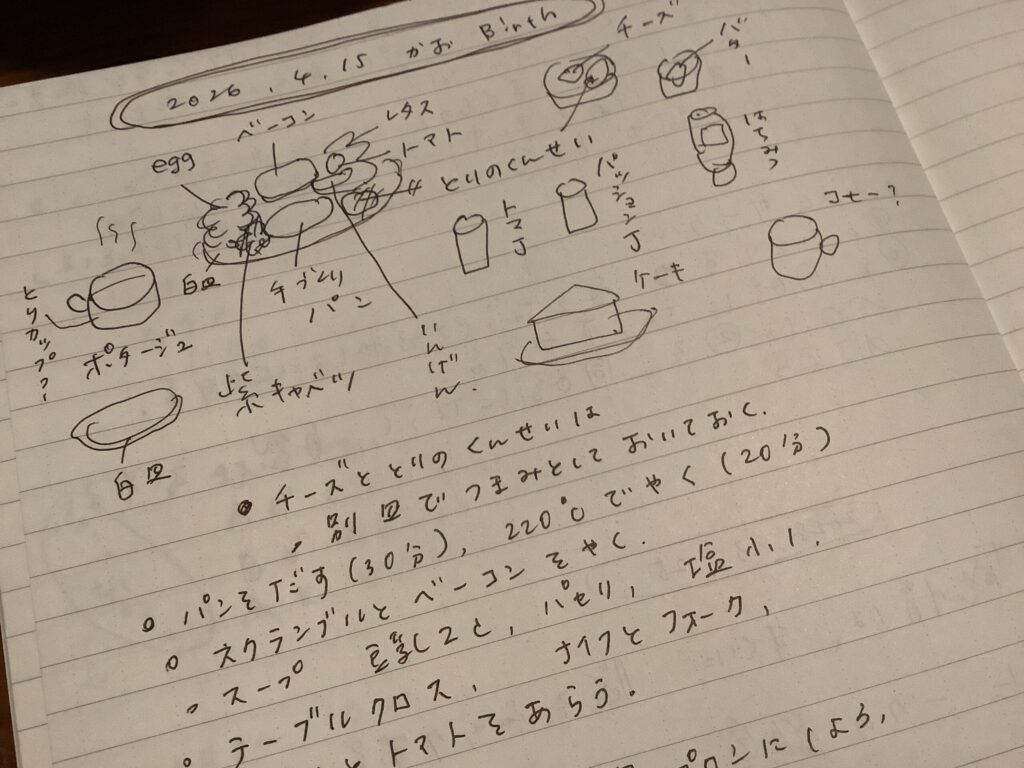 2026.4.15 かお Birth
チーズ
バター
ベーコン
レタス
トマト
egg
とりのくんせい
はちみつ
パッションJ
トマJ
コーヒー?
白皿
チブリ
パン
ケーキ
とりカップ?
ポタージュ
いんげん.
紫キャベツ
白皿
・チーズととりのくんせいは
別皿でつまみとしておいておく.
・パンを下だす(30分), 220℃でやく(20分)
・スクランブルとベーコンをやく.
・スープ 豆乳 パセリ, 塩
・テーブルクロス, ナイフとフォーク,
とトマトをあらう.